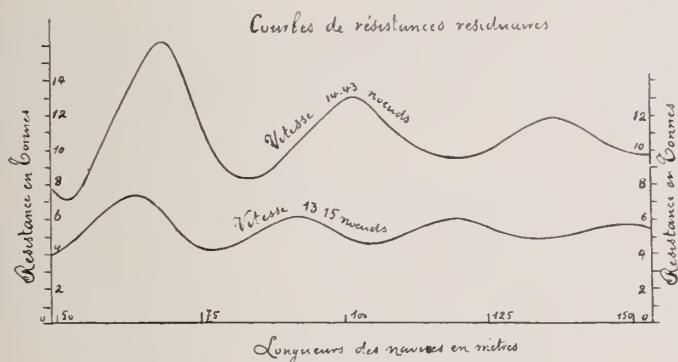 Courbes de résistances residuaires
Resistance en Tonnes
14
12
10
8
6
4
2
0
Vitesse 14.43 noeuds
Vitesse 13 15 noeuds
12
10
8
6
4
2
0
Resistance en Tonnes
50
75
100
125
150
Longueurs des navires en mètres